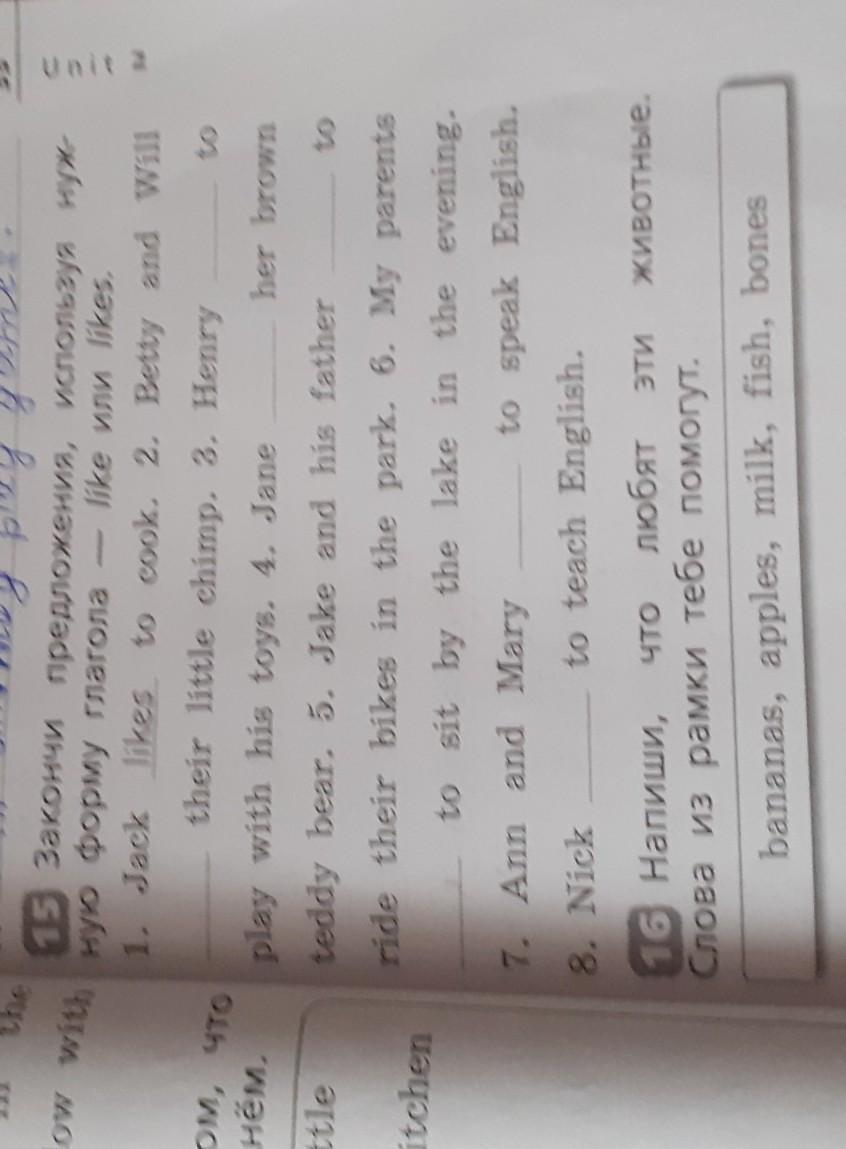 Unit 2
15 Закончи предложения, используя нуж-
ную форму глагола — like или likes.
1. Jack likes to cook. 2. Betty and Will
____ their little chimp. 3. Henry ____ to
play with his toys. 4. Jane ____ her brown
teddy bear. 5. Jake and his father ____ to
ride their bikes in the park. 6. My parents
____ to sit by the lake in the evening.
7. Ann and Mary ____ to speak English.
8. Nick ____ to teach English.
16 Напиши, что любят эти животные.
Слова из рамки тебе помогут.
bananas, apples, milk, fish, bones
the
with
что
нём.